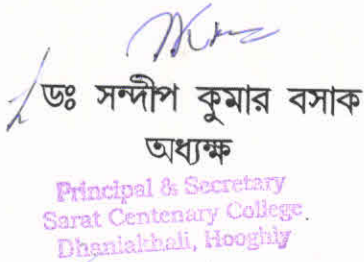 ডঃ সন্দীপ কুমার বসাক
অধ্যক্ষ
Principal & Secretary
Sarat Centenary College.
Dhaniakhali, Hooghly